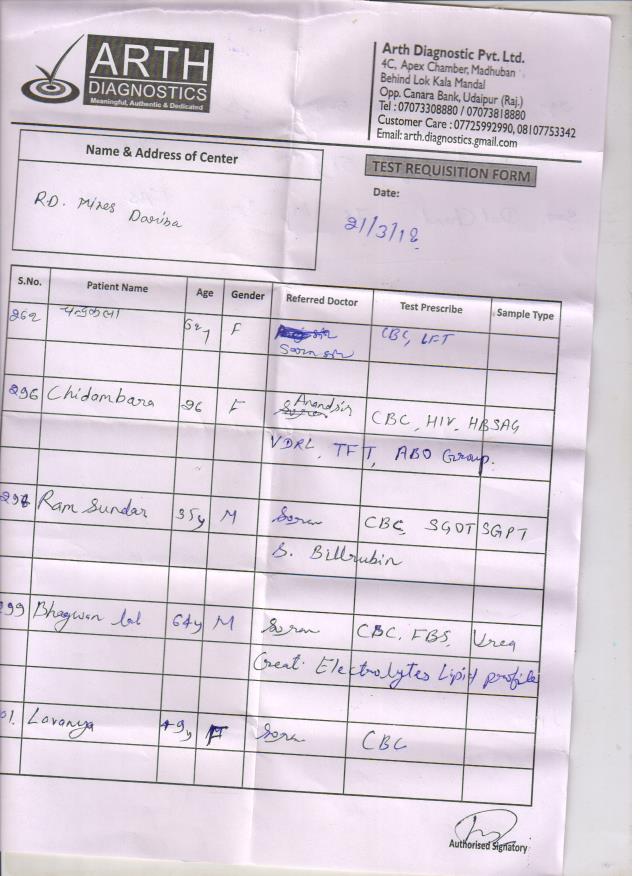 ARTH
DIAGNOSTICS
Meaningful, Authentic & Dedicated
Arth Diagnostic Pvt. Ltd.
4C, Apex Chamber, Madhuban
Behind Lok Kala Mandal
Opp. Canara Bank, Udaipur (Raj.)
Tel : 07073308880 / 07073818880
Customer Care : 07725992990, 08107753342
Email: arth.diagnostics.gmail.com
Name & Address of Center
R.D. Mines Dariba
TEST REQUISITION FORM
Date:
21/3/18
S.No. Patient Name Age Gender Referred Doctor Test Prescribe Sample Type
262 F CBC, LFT
296 Chidambara 26 F Anand sir CBC, HIV, HBSAG
VDRL, TFT, ABO Group.
Ram Sundar 35y M CBC, SGOT SGPT
S. Billrubin
299 Bhagwan lal 64y M CBC, FBS, Urea
Creat. Electrolytes Lipid profile
01. Lavanya F CBC
Authorised Signatory